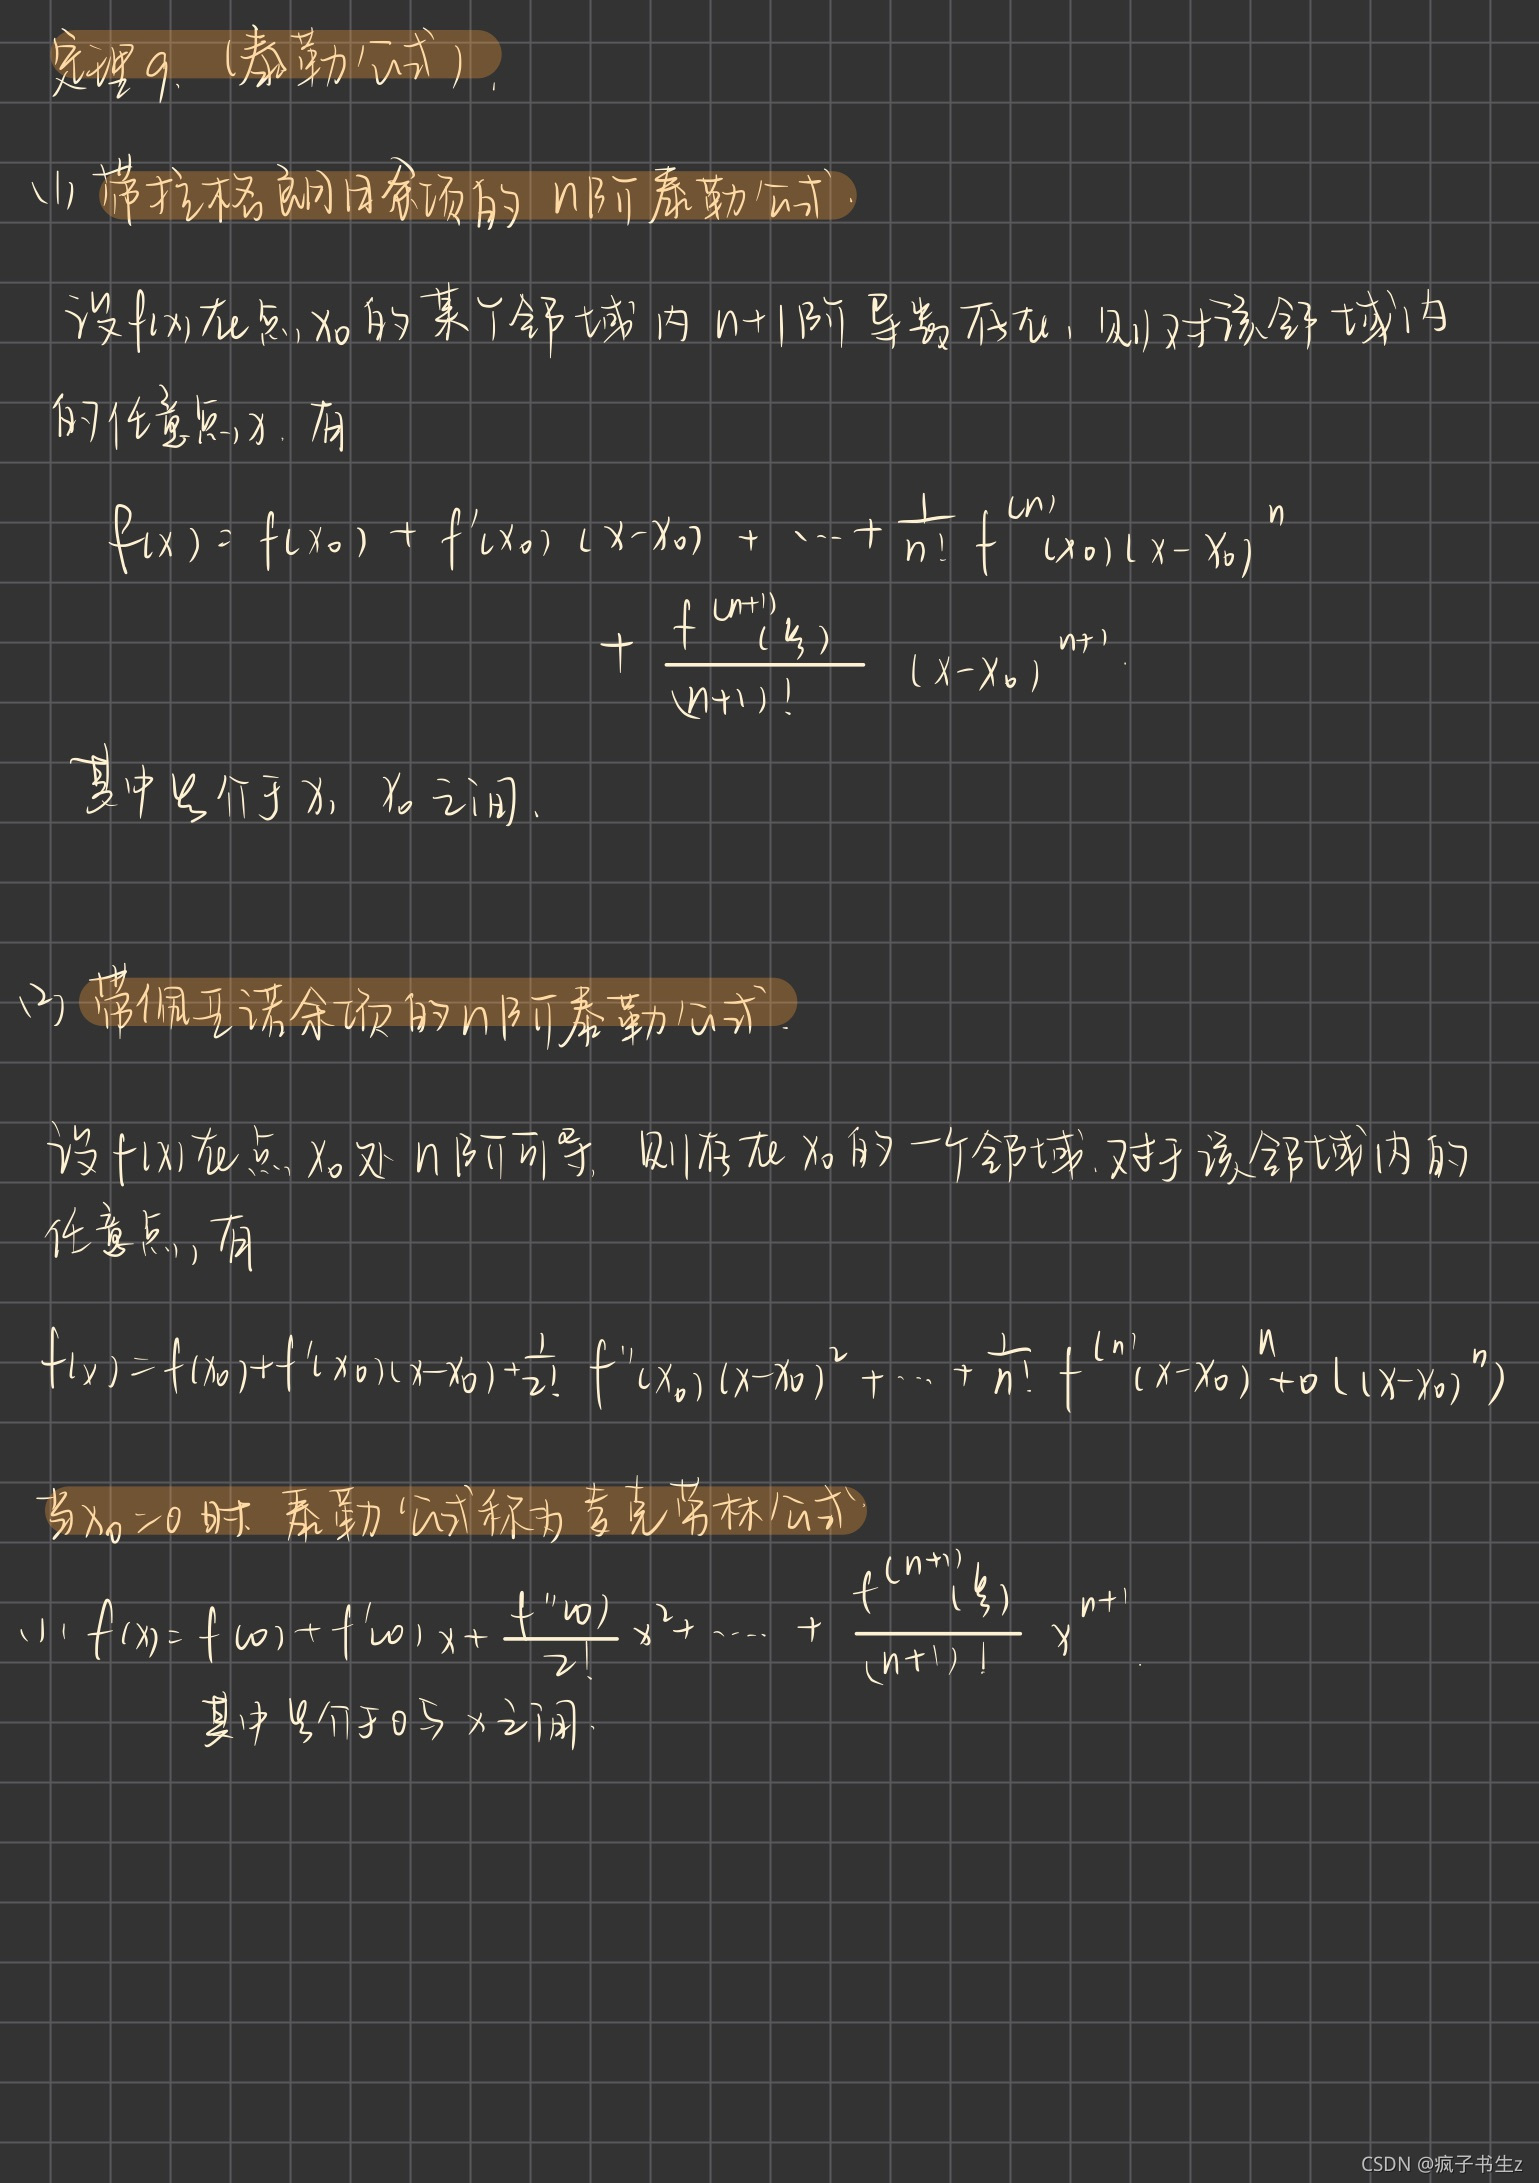 定理9.（泰勒公式）.
(1) 带拉格朗日余项的 n阶泰勒公式.
设f(x)在点x₀的某个邻域内n+1阶导数存在，则对该邻域内
的任意点x.有
f(x) = f(x₀) + f'(x₀)(x-x₀) + ⋯ + \frac{1}{n!} f^{(n)}(x₀)(x-x₀)^n
+ \frac{f^{(n+1)}(ξ)}{(n+1)!} (x-x₀)^{n+1}.
其中ξ介于x，x₀之间.
(2) 带佩亚诺余项的n阶泰勒公式.
设f(x)在点x₀处n阶可导，则存在x₀的一个邻域.对于该邻域内的
任意点，有
f(x)=f(x₀)+f'(x₀)(x-x₀)+\frac{1}{2!} f''(x₀)(x-x₀)² + ⋯ + \frac{1}{n!} f^{(n)}(x-x₀)^n+o((x-x₀)^n)
当x₀=0时 泰勒公式称为麦克劳林公式
(1) f(x)= f(0)+f'(0)x+\frac{f''(0)}{2!}x²+ ⋯⋯ + \frac{f^{(n+1)}(ξ)}{(n+1)!} x^{n+1}.
其中ξ介于0与x之间.
CSDN @疯子书生z